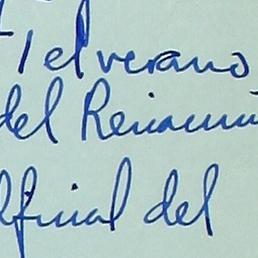 el verano
del Renacimi
al final del